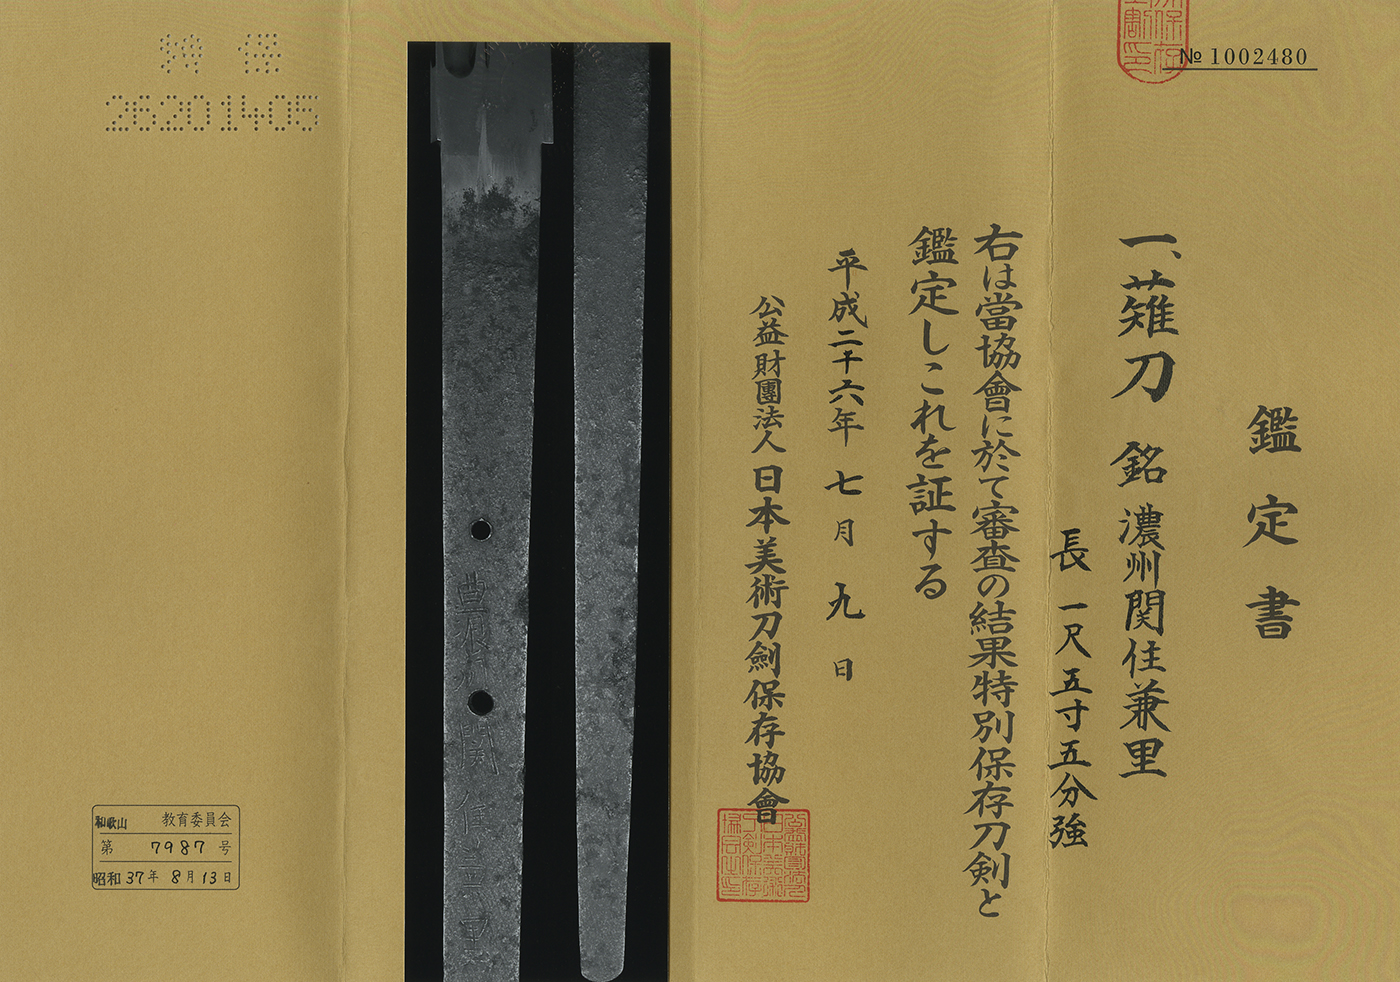 № 1002480
鑑定書
一、薙刀 銘 濃州関住兼里
長 一尺五寸五分強
右は當協會に於て審査の結果特別保存刀剣と
鑑定しこれを証する
平成二十六年 七月 九日
公益財團法人 日本美術刀劍保存協會
特保
26201405
濃州関住兼里
和歌山 教育委員会
第 7987 号
昭和 37年 8月 13日